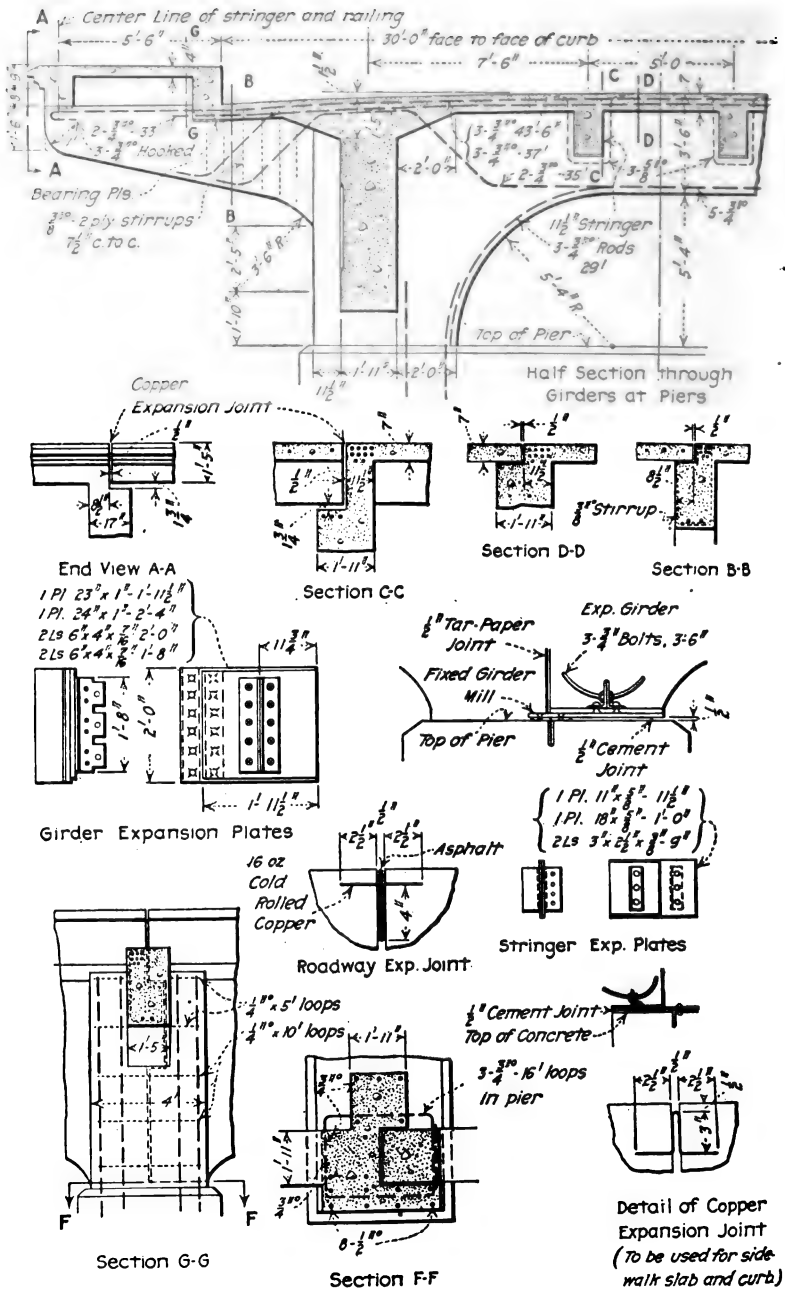 A
Center Line of stringer and railing
5'-6"
G
4"
30'-0" face to face of curb
7'-6"
5'-0
B
1½"
C
D
7"
G
2-¾"□-33
3-¾"□ Hooked
3-¾"□ 43'6"
3-¾"□-37'
2-¾"□-35'
2'-0"
C
D
3'-6"
A
Bearing Pls.
⅜"□-2 ply stirrups
7½" c. to c.
B
2'-5"
3'-6"R
1'-10"
11½" Stringer
3-¾"□ Rods
29'
5-¾"□
5'-4"R
5'-4"
Top of Pier
11½"
1'-11"
2'-0"
Half Section through
Girders at Piers
Copper
Expansion Joint
½"
1'-5"
8½"
17"
1¾"
End View A-A
½"
11½"
7"
1¾"
1'-11"
Section C-C
7"
½"
11½"
1'-11"
Section D-D
½"
8½"
⅜" Stirrup
Section B-B
1 Pl. 23" x 1" - 1'-11½"
1 Pl. 24" x 1" - 2'-4"
2 Ls 6" x 4" x 7/16" 2'-0"
2 Ls 6" x 4" x 7/16" 1'-8"
11¾"
1'-8"
2'-0"
1'-11½"
Girder Expansion Plates
½" Tar-Paper
Joint
Exp. Girder
3-¾" Bolts, 3'-6"
Fixed Girder
Mill
Top of Pier
½" Cement
Joint
½"
1 Pl. 11" x ⅝" - 11½"
1 Pl. 18" x ⅝" - 1'-0"
2 Ls 3" x 2½" x ⅜" - 9"
Stringer Exp. Plates
½"
2½"
2½"
Asphalt
16 oz
Cold
Rolled
Copper
4"
Roadway Exp. Joint
¼"□ x 5' loops
¼"□ x 10' loops
1'-5
4'
F
F
Section G-G
1'-11"
¾"□
3-¾"□-16' loops
In pier
1'-11"
¾"□
8-½"□
Section F-F
½" Cement Joint
Top of Concrete
2½"
½"
2½"
1½"
3"
Detail of Copper
Expansion Joint
(To be used for side
walk slab and curb)